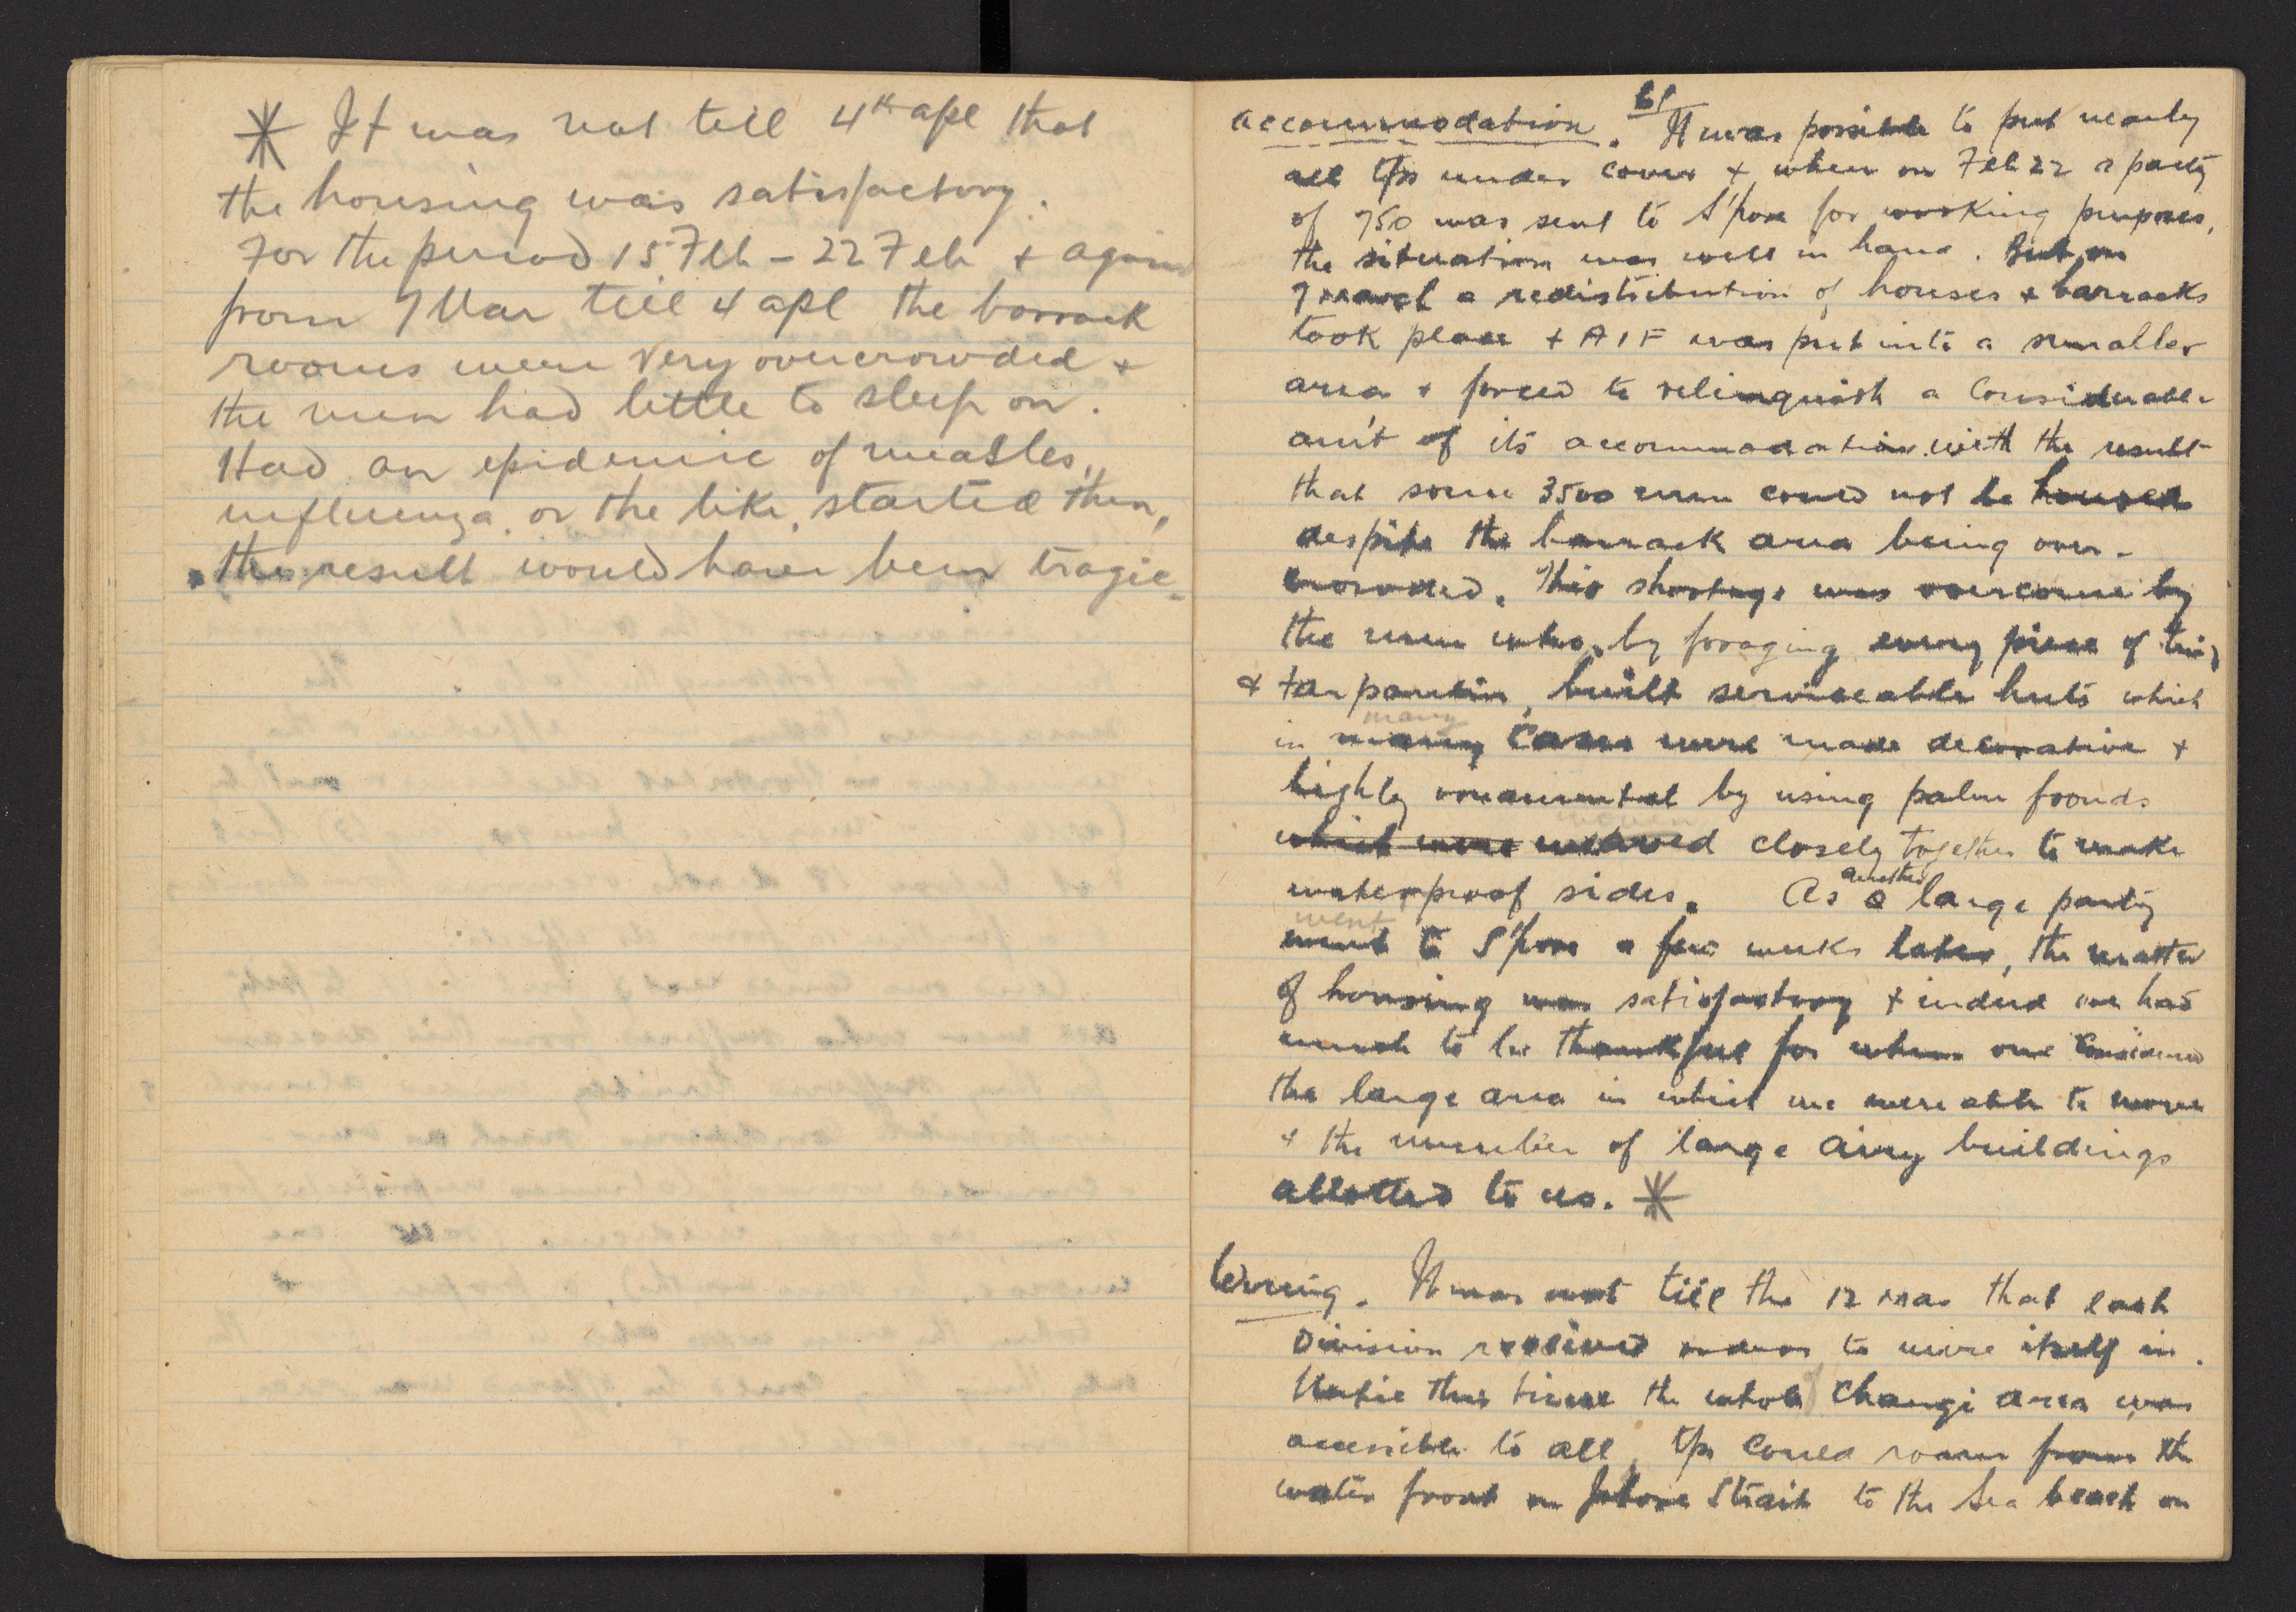 * It was not till 4th apl that
the housing was satisfactory.
For the period 15 Feb - 22 Feb + again
from 7 Mar till 4 apl the barrack
rooms were very overcrowded +
the men had little to sleep on.
Had an epidemic of measles,
influenza, or the like, started then,
the result would have been tragic.
61
accommodation. It was possible to put nearly
all tps under cover + when on Feb 22 a party
of 750 was sent to S'pore for working purposes,
the situation was well in hand. But on
7 March a redistribution of houses + barracks
took place + AIF was put into a smaller
area + forced to relinquish a considerable
am't of its accommodation with the result
that some 3500 men could not be housed
despite the barrack area being over-
crowded. This shortage was overcome by
the men who, by foraging every piece of tin,
+ tarpaulin, built serviceable huts which
many
in many cases were made decorative +
highly ornamental by using palm fronds
woven
which were weaved closely together to make
another
waterproof sides. As a large party
went
went to S'pore a few weeks later, the matter
of housing was satisfactory + indeed we had
much to be thankful for when one considered
the large area in which we were able to move
+ the number of large airy buildings
allotted to us. *
Wiring. It was not till the 12 Mar that each
Division received orders to wire itself in.
Until this time the whole Changi area was
accesible to all, tps could roam from the
water front on Johore Strait to the Sea beach on